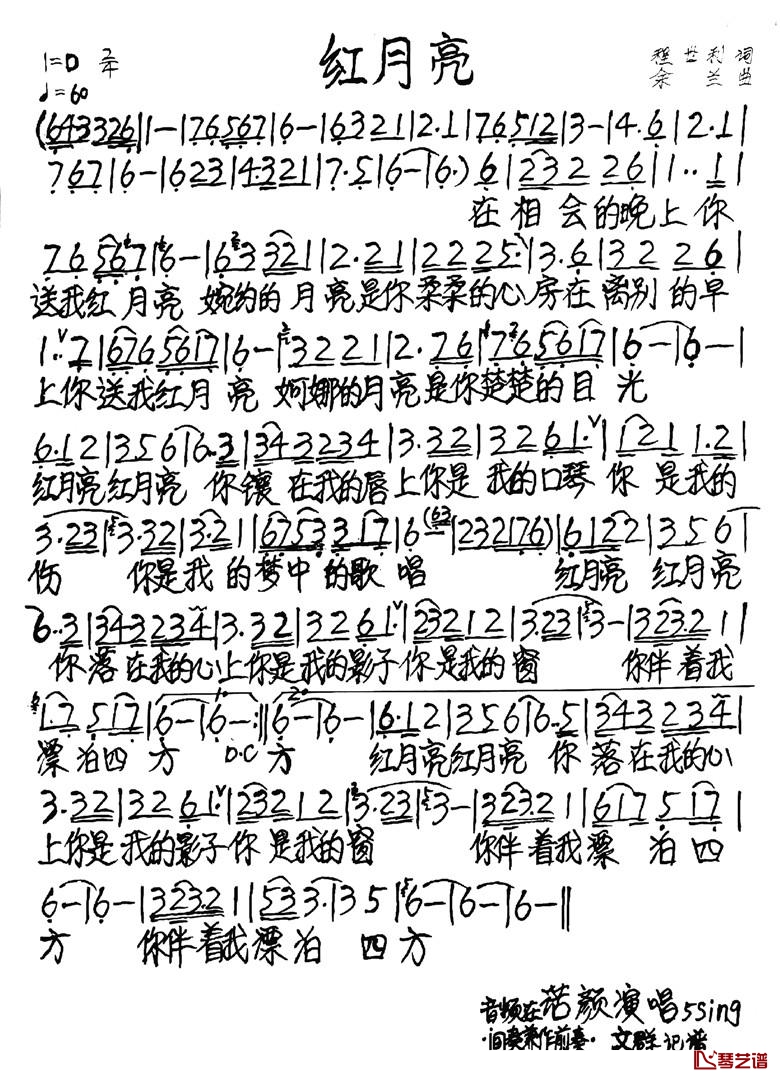 红月亮
1=D 2/4
♩=60
程世利 词
余兰 曲
(643326|1-|76567|6-|6321|2·1|76512|3-|4·6|2·1|
767|6-|623|4321|7·5|6-|6·)6|232 26|1··1|
在相会的晚上你
76567|6-|63321|2·21|2225·|3·6|322 6|
送我红月亮 婉约的月亮是你柔柔的心房在离别的早
1··7|6765617|6-|3221|2·76|765617|6-|6-|
上你送我红月亮 婀娜的月亮是你楚楚的目光
6·12|356|6··3|343234|3·32|3261·|121 1·2|
红月亮红月亮 你镶在我的唇上你是我的口琴你是我的
3·23|3·32|3·211|6753317|6(63|232176)|6122|356|
伤 你是我的梦中的歌唱 红月亮 红月亮
6··3|343234|3·32|3261·|23212|3·23|3-|323·21|
你落在我的心上你是我的影子你是我的窗 你伴着我
1·7517|6-|6-:‖6-|6-|6·12|356|6··5|343234|
漂泊四方 D.C 方 红月亮红月亮 你落在我的心
3·32|3261·|23212|3·23|3-|323·21|617517|
上你是我的影子你是我的窗 你伴着我漂泊四
6-|6-|323·21|533·|35|6-|6-|6-‖
方 你伴着我漂泊四方
音频在诺颜演唱5Sing
·间奏兼作前奏· 文群记谱
琴艺谱